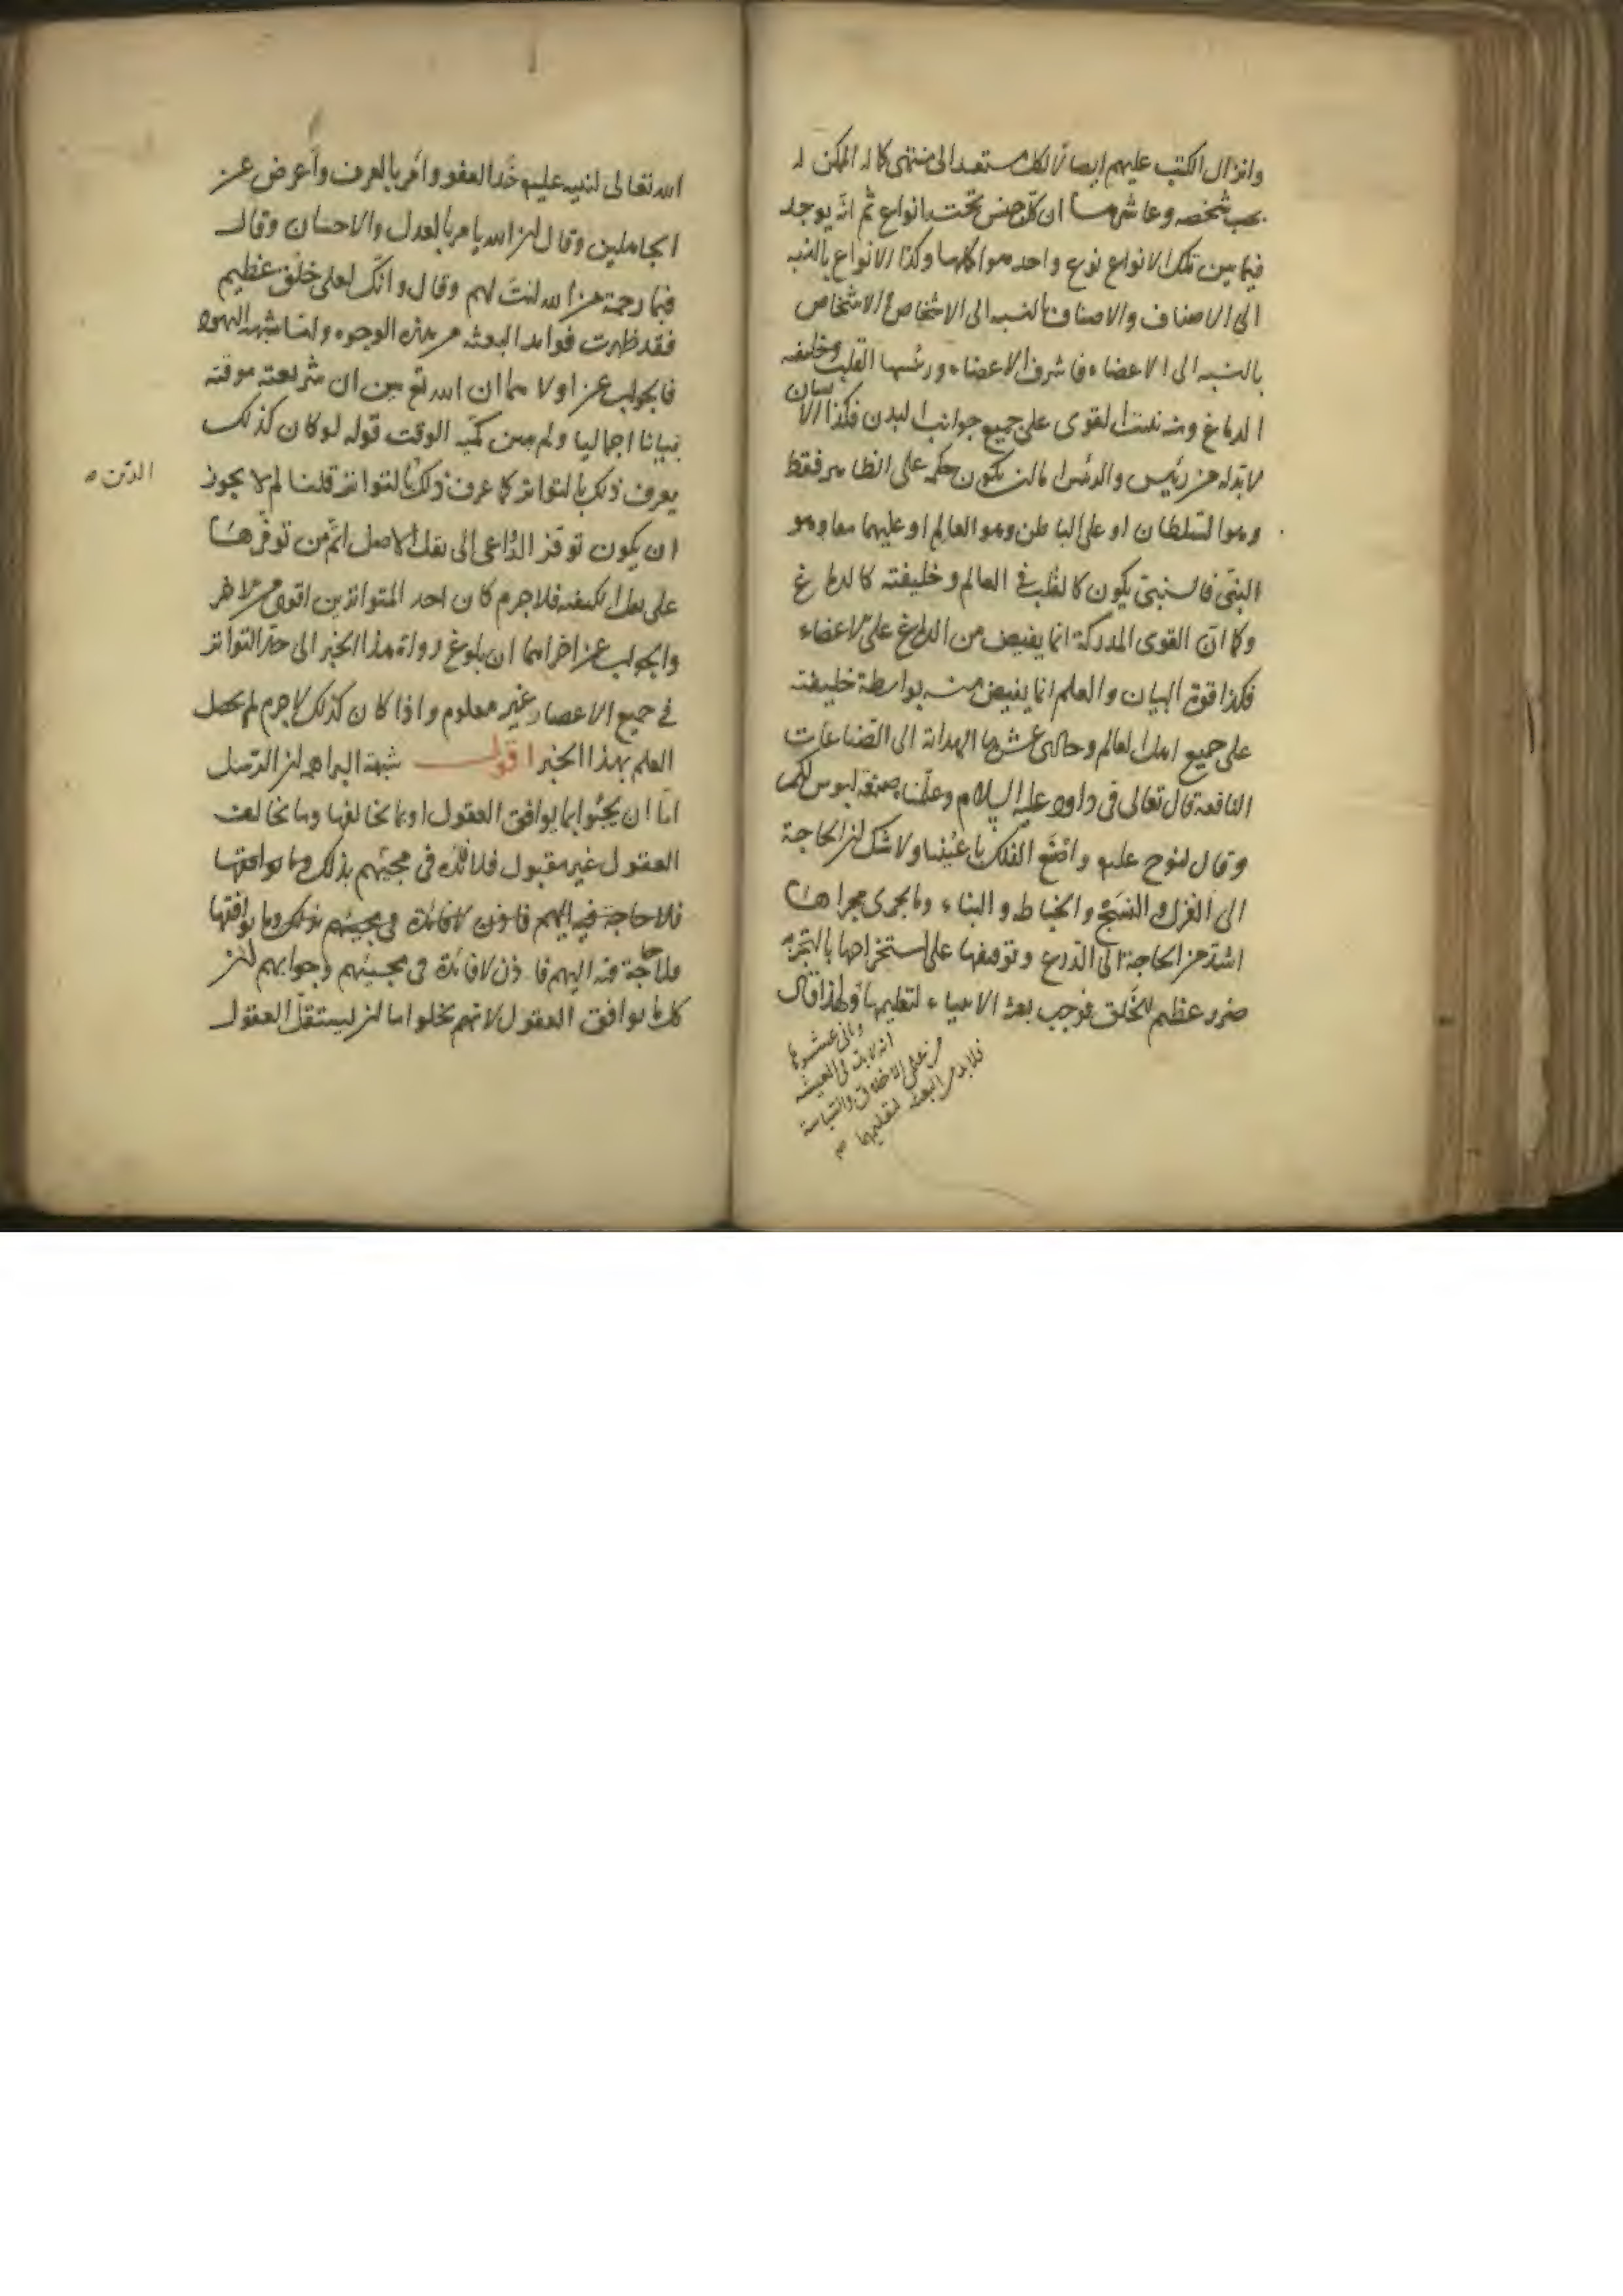 وانزال الكتب عليهم ايصالا لكل مستعد الى منتهى كماله الممكن له
بحسب شخصه وعاشرها ان كل جنس تحته انواع ثم انه يوجد
فيما بين تلك الانواع نوع واحد هو اكملها وكذا الانواع بالنسبة
الى الاصناف والاصناف بالنسبة الى الاشخاص والاشخاص
بالنسبة الى الاعضاء فاشرف الاعضاء ورئيسها القلب وخليفته
الدماغ ومنه تنبث القوى على جميع جوانب البدن فكذا الانسان
لا بد له من رئيس والرئيس اما ان يكون حكمه على الظاهر فقط
وهو السلطان او على الباطن وهو العالم او عليهما معا وهو
النبي فالنبي يكون كالقلب في العالم وخليفته كالدماغ
وكما ان القوى المدركة انما يفيض من الدماغ على الاعضاء
فكذا قوة البيان والعلم انما يفيض منه بواسطة خليفته
على جميع اهل العالم وحادى عشرها الهداية الى الصناعات
النافعة قال تعالى فى داود عليه السلام وعلمناه صنعة لبوس لكم
وقال لنوح عليه واصنع الفلك باعيننا ولا شك ان الحاجة
الى الغزل والنسج والخياطة والبناء وما يجرى مجراها
اشد من الحاجة الى الدرع وتوقفها على استخراجها بالتجربة
ضرر عظيم للخلق فوجب بعثة الانبياء لتعليمها ولهذا قال
وثانى عشرها
انه لا بد فى المعيشة
من علمى الاخلاق والسياسة
فلا بد من البعثة لتعليمها
الله تعالى لنبيه عليه خذ العفو وأمر بالعرف وأعرض عن
الجاهلين وقال ان الله يامر بالعدل والاحسان وقال
فبما رحمة من الله لنت لهم وقال وانك لعلى خلق عظيم
فقد ظهرت فوائد البعثة من هذه الوجوه واما شبهة اليهود
فالجواب عن اولاهما ان الله تع بين ان شريعته موقتة
بيانا اجماليا ولم يبين كمية الوقت قوله لو كان كذلك
يعرف ذلك بالتواتر كما عرف ذلك بالتواتر قلنا لم لا يجوز
الدين
ان يكون توفر الدواعى الى نقل الاصل اتم من توفرها
على نقل الكيفية فلا جرم كان احد المتواترين اقوى من الاخر
والجواب عن اخراهما ان بلوغ رواة هذا الخبر الى حد التواتر
فى جميع الاعصار غير معلوم واذا كان كذلك لا جرم لم يحصل
العلم بهذا الخبر اقول شبهة البراهمة ان الرسل
اما ان يجيئوا بما يوافق العقول او بما يخالفها وما يخالف
العقول غير مقبول فلا فائدة فى مجيئهم بذلك وما يوافقها
فلا حاجة فيه اليهم فاذن لا فائدة فى مجيئهم بذلك وما يوافقها
فلا حاجة فيه اليهم فاذن لا فائدة فى مجيئهم وجوابهم ان
كل ما يوافق العقول لانهم يخلوا اما ان يستقل العقول